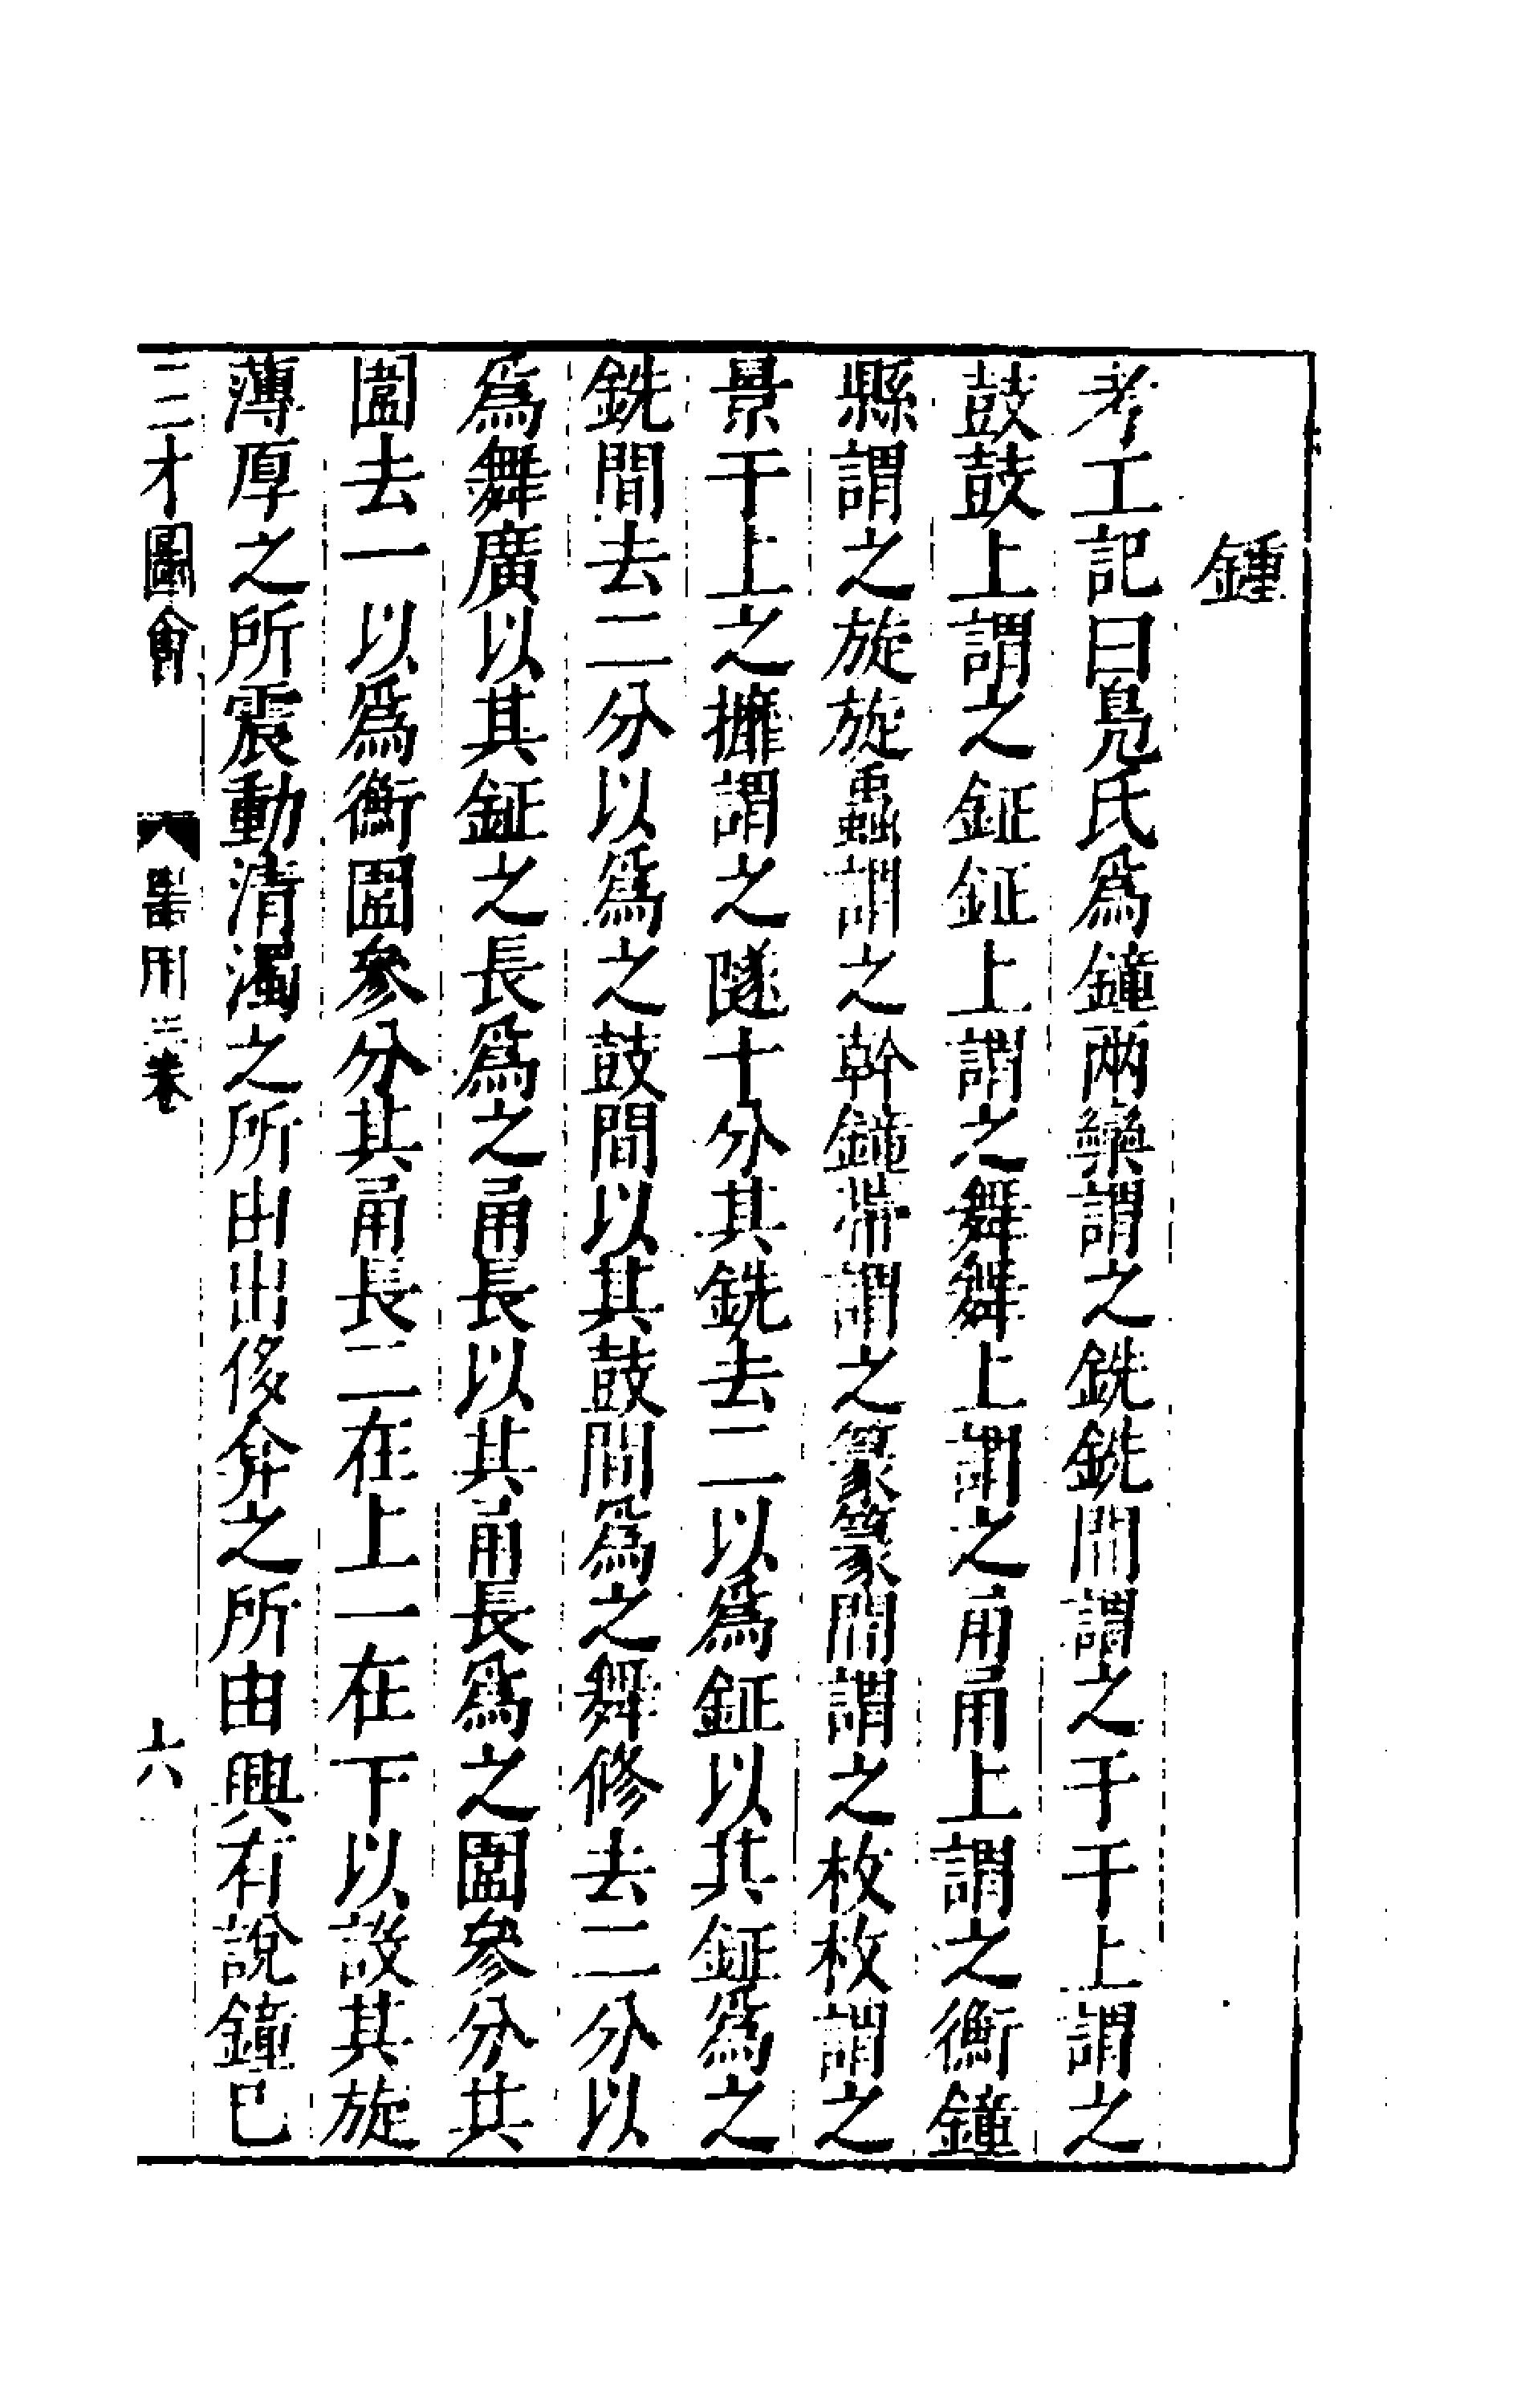 鍾
考工記曰鳧氏爲鐘兩欒謂之銑銑間謂之于于上謂之
鼓鼓上謂之鉦鉦上謂之舞舞上謂之甬甬上謂之衡鐘
縣謂之旋旋蟲謂之幹鐘帶謂之篆篆間謂之枚枚謂之
景于上之攠謂之隧十分其銑去二以爲鉦以其鉦爲之
銑間去二分以爲之鼓間以其鼓間爲之舞修去二分以
爲舞廣以其鉦之長爲之甬長以其甬長爲之圍參分其
圍去一以爲衡圍參分其甬長二在上一在下以設其旋
薄厚之所震動清濁之所由出侈弇之所由興有說鐘已
三才圖會 器用三卷 六